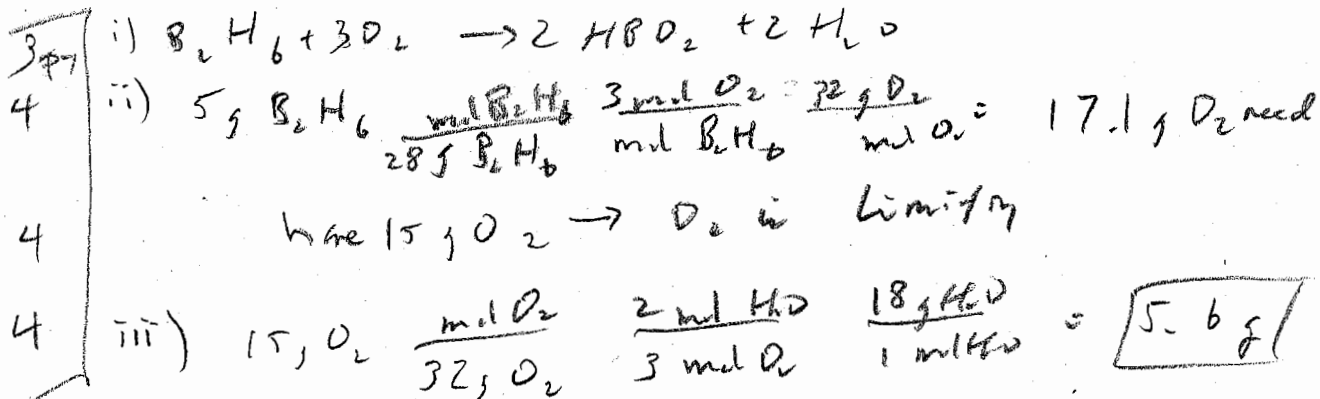 3 pts i) B₂H₆ + 3O₂ → 2 HBO₂ + 2 H₂O
4 ii) 5 g B₂H₆ mol B₂H₆ / 28 g B₂H₆ 3 mol O₂ / mol B₂H₆ 32 g O₂ / mol O₂ = 17.1 g O₂ need
4 have 15 g O₂ → O₂ is Limiting
4 iii) 15 g O₂ mol O₂ / 32 g O₂ 2 mol H₂O / 3 mol O₂ 18 g H₂O / 1 mol H₂O = 5.6 g